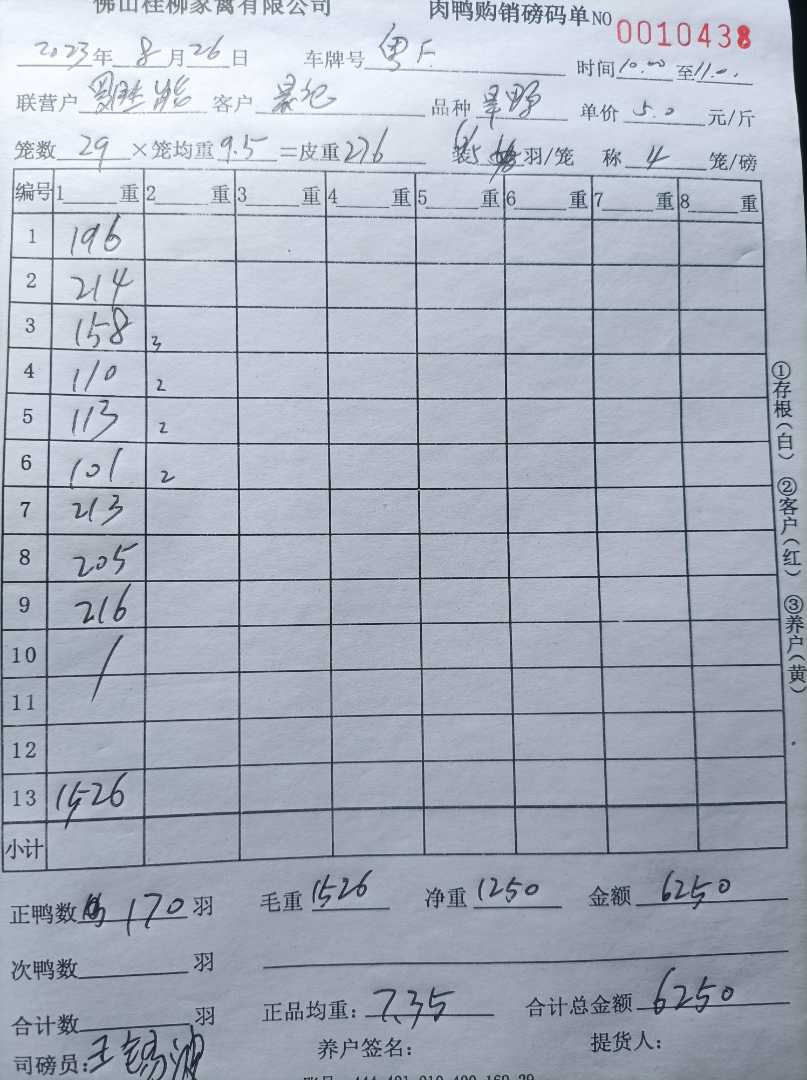 佛山桂柳家禽有限公司 肉鸭购销磅码单 NO 0010438
2023年 8月26日 车牌号 粤F. 时间10.00至11.0.
联营户 客户 品种 单价 5.0 元/斤
笼数 29 ×笼均重 9.5 =皮重 276 装 羽/笼 称 4 笼/磅
编号 1 重 2 重 3 重 4 重 5 重 6 重 7 重 8 重
1 196
2 214
3 158 3
4 110 2
5 113 2
6 101 2
7 213
8 205
9 216
10 /
11
12
13 1526
小计
正鸭数 170 羽 毛重 1526 净重 1250 金额 6250
次鸭数 羽
合计数 羽 正品均重: 7.35 合计总金额 6250
司磅员: 养户签名: 提货人:
①存根(白) ②客户(红) ③养户(黄)